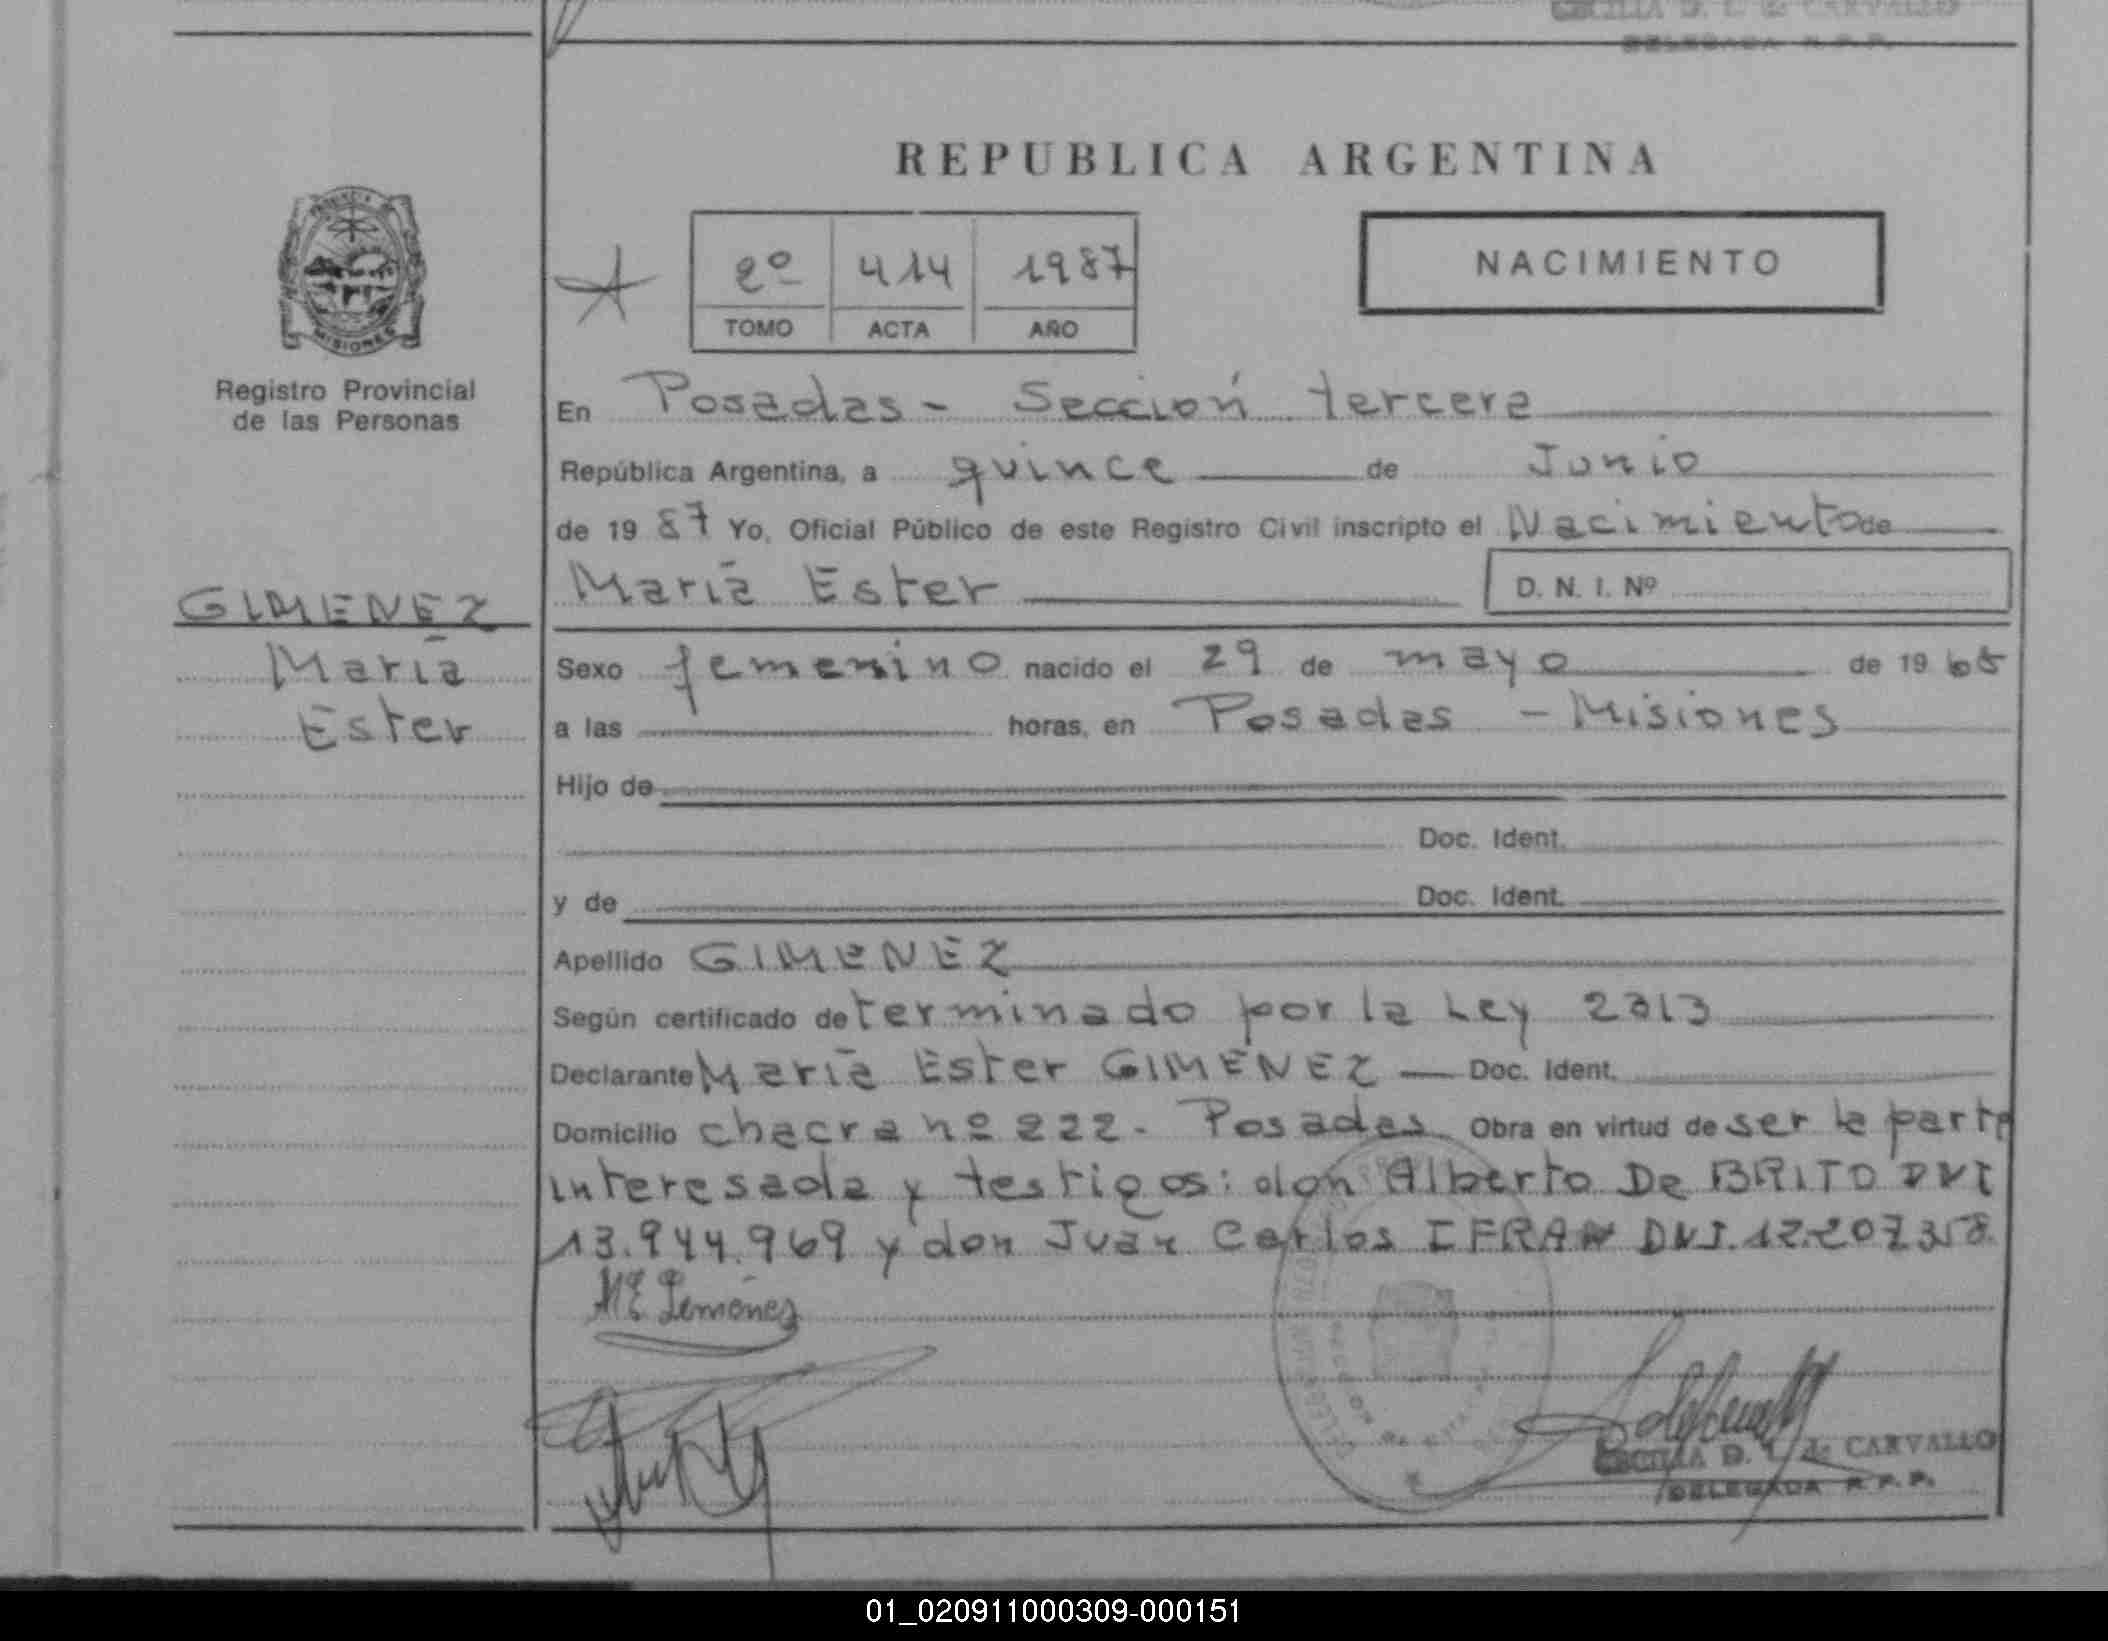 CECILIA D. L. de CARVALLO
DELEGADA R.P.P.
REPUBLICA ARGENTINA
2º 414 1987
TOMO ACTA AÑO
NACIMIENTO
MISIONES
Registro Provincial
de las Personas
En Posadas - Sección tercera
República Argentina, a quince de Junio
de 19 87 Yo, Oficial Público de este Registro Civil inscripto el Nacimiento de
María Ester D. N. I. Nº
GIMENEZ
María
Ester
Sexo femenino nacido el 29 de mayo de 19 65
a las horas, en Posadas - Misiones
Hijo de
Doc. Ident.
y de Doc. Ident.
Apellido GIMENEZ
Según certificado determinado por la Ley 2313
Declarante María Ester GIMENEZ Doc. Ident.
Domicilio chacra nº 222 - Posadas Obra en virtud de ser la parte
interesada y testigos: don Alberto De BRITO DNI
13.944.969 y don Juan Carlos IFRAN DNI. 12.207.358.
CECILIA D. L. de CARVALLO
DELEGADA R.P.P.
01_020911000309-000151